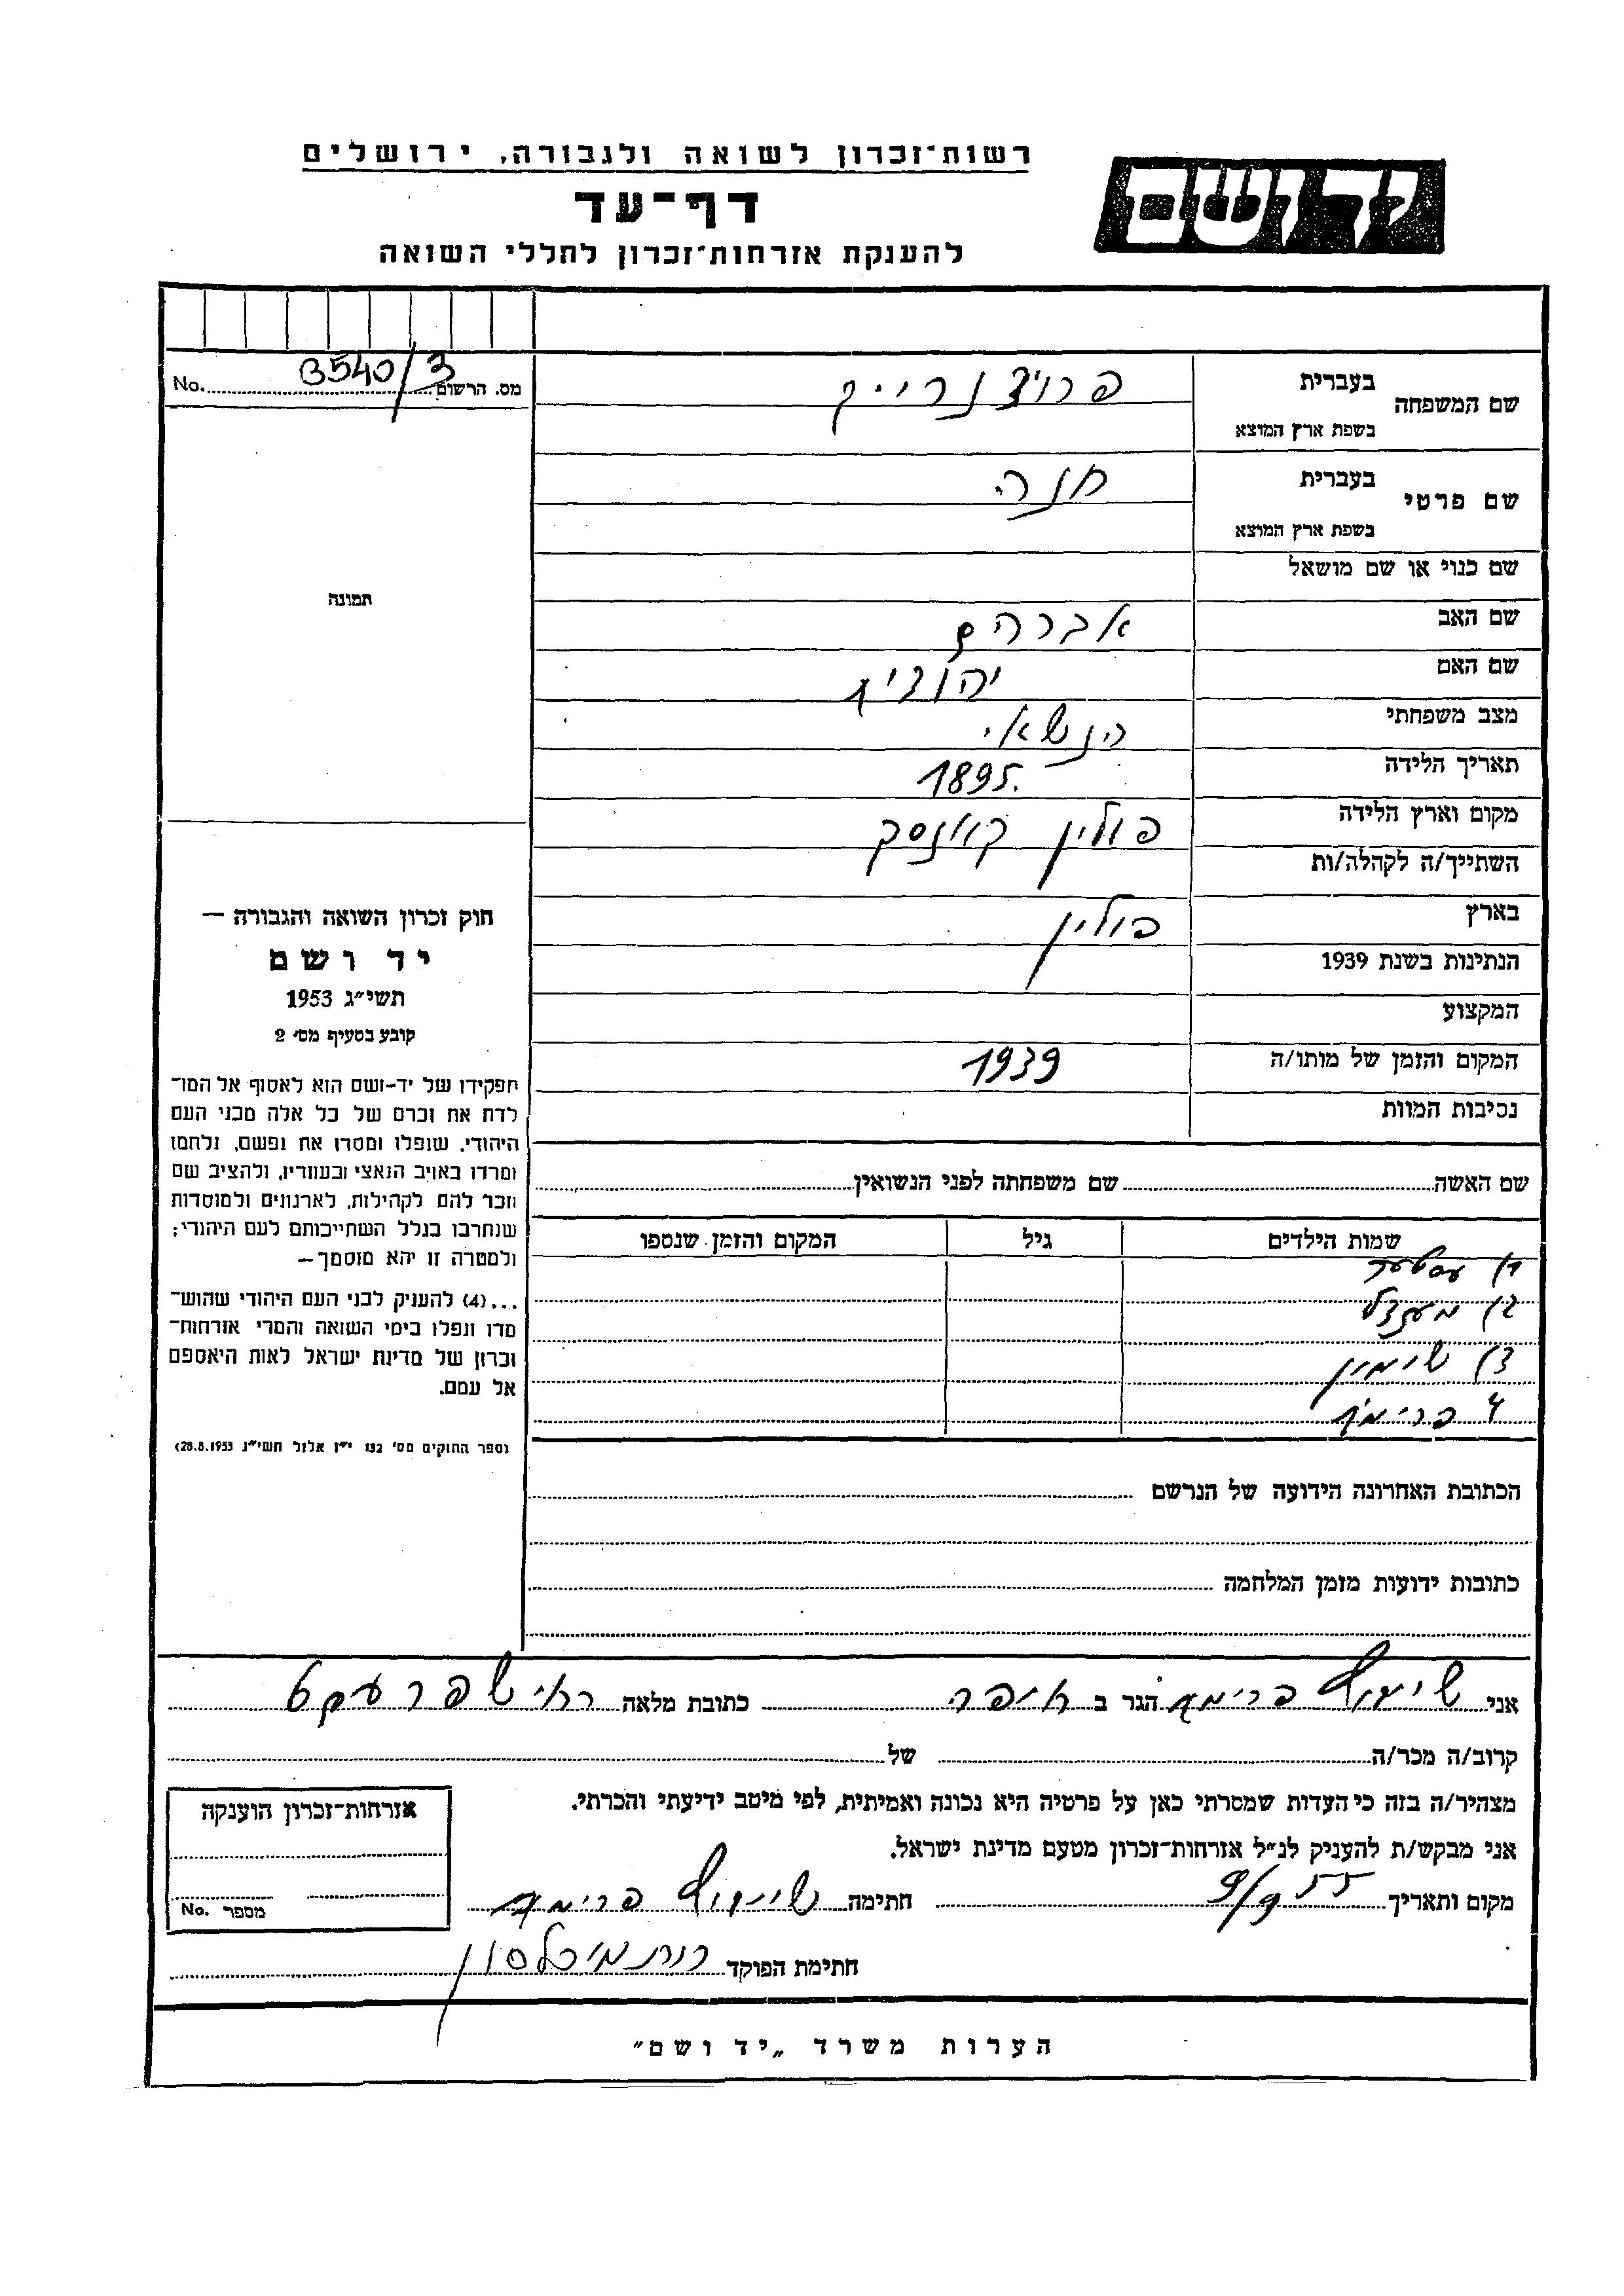 רשות־זכרון לשואה ולגבורה, ירושלים
יד ושם
דף־עד
להענקת אזרחות־זכרון לחללי השואה
מס. הרשום 3540/3 No.
שם המשפחה
בעברית
בשפת ארץ המוצא
שם פרטי
בעברית חנה
בשפת ארץ המוצא
שם כנוי או שם מושאל
שם האב אברהם
שם האם יהודית
מצב משפחתי נשואי
תאריך הלידה 1895.
מקום וארץ הלידה פולין
השתייך/ה לקהלה/ות
בארץ פולין
הנתינות בשנת 1939
המקצוע
המקום והזמן של מותו/ה 1939
נסיבות המוות
שם האשה שם משפחתה לפני הנשואין
שמות הילדים גיל המקום והזמן שנספו
1)
2)
3) שימון
4
הכתובת האחרונה הידועה של הנרשם
כתובות ידועות מזמן המלחמה
תמונה
חוק זכרון השואה והגבורה —
יד ושם
תשי״ג 1953
קובע בסעיף מס׳ 2
תפקידו של יד-ושם הוא לאסוף אל המו־
לדת את זכרם של כל אלה מבני העם
היהודי, שנפלו ומסרו את נפשם, נלחמו
ומרדו באויב הנאצי ובעוזריו, ולהציב שם
וזכר להם לקהילות, לארגונים ולמוסדות
שנחרבו בגלל השתייכותם לעם היהודי;
ולמטרה זו יהא מוסמך—
...(4) להעניק לבני העם היהודי שהוש־
מדו ונפלו בימי השואה והמרי אזרחות־
זכרון של מדינת ישראל לאות היאספם
אל עמם.
(ספר החוקים מס׳ 132 י״ז אלול תשי״ג 28.8.1953)
אני הגר ב חיפה כתובת מלאה
קרוב/ה מכר/ה של
מצהיר/ה בזה כי העדות שמסרתי כאן על פרטיה היא נכונה ואמיתית, לפי מיטב ידיעתי והכרתי.
אני מבקש/ת להעניק לנ״ל אזרחות־זכרון מטעם מדינת ישראל.
מקום ותאריך 9/9 55 חתימה
חתימת הפוקד
אזרחות־זכרון הוענקה
מספר No.
הערות משרד „יד ושם״